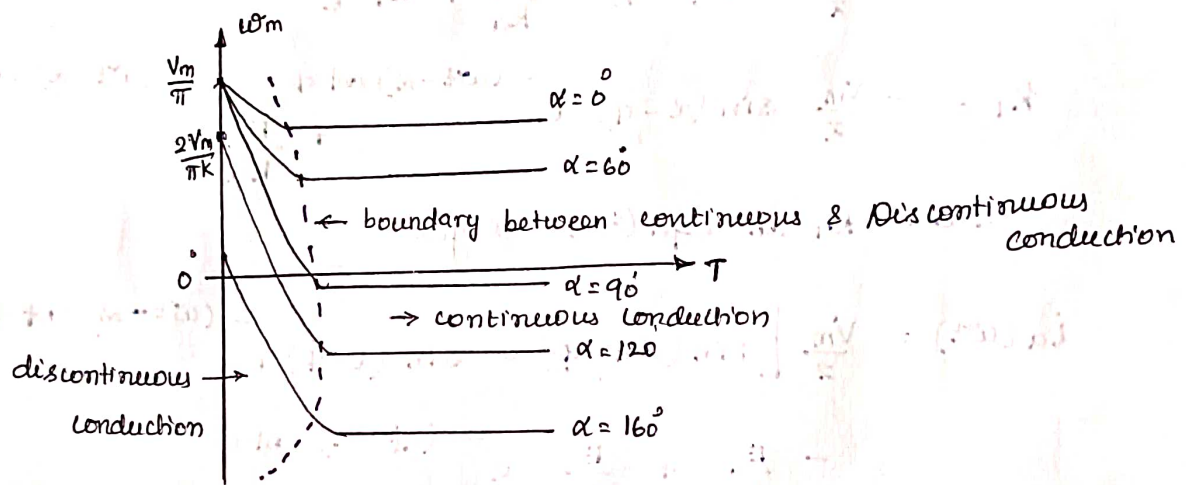 ωm
Vm/π
α = 0°
2Vm/πK
α = 60°
← boundary between continuous & Discontinuous
conduction
0
T
α = 90°
→ continuous conduction
α = 120
discontinuous →
conduction
α = 160°